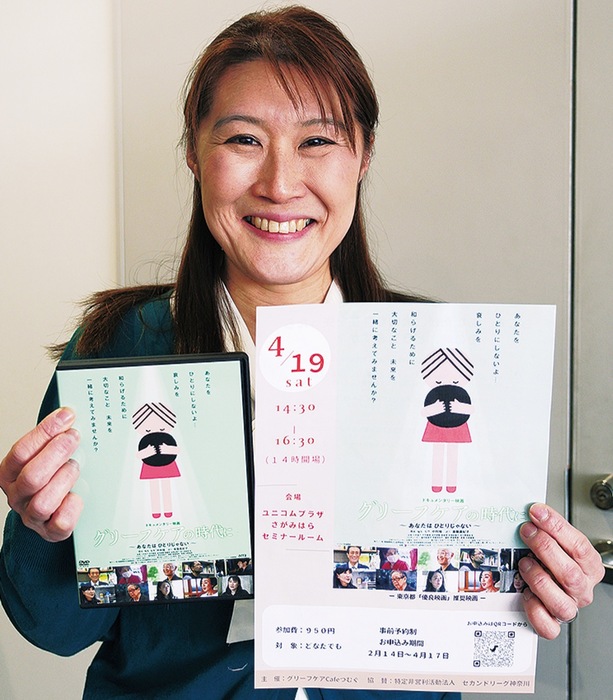 あなたを
ひとりにしないよ
哀しみを
和らげるために
大切なこと 未来を
一緒に考えてみませんか？
ドキュメンタリー映画
グリーフケアの時代に
―あなたは ひとりじゃない―
DVD
4/19
sat
14:30
|
16:30
(14時開場)
会場
ユニコムプラザ
さがみはら
セミナールーム
あなたを
ひとりにしないよ
哀しみを
和らげるために
大切なこと 未来を
一緒に考えてみませんか？
ドキュメンタリー映画
グリーフケアの時代に
―あなたは ひとりじゃない―
― 東京都「優良映画」推奨映画 ―
参加費：950円
対 象：どなたでも
事前予約制
お申込み期間
2月14日～4月17日
お申込みはQRコードから
主催：グリーフケアCafeつむぐ 協 賛：特定非営利活動法人 セカンドリーグ神奈川